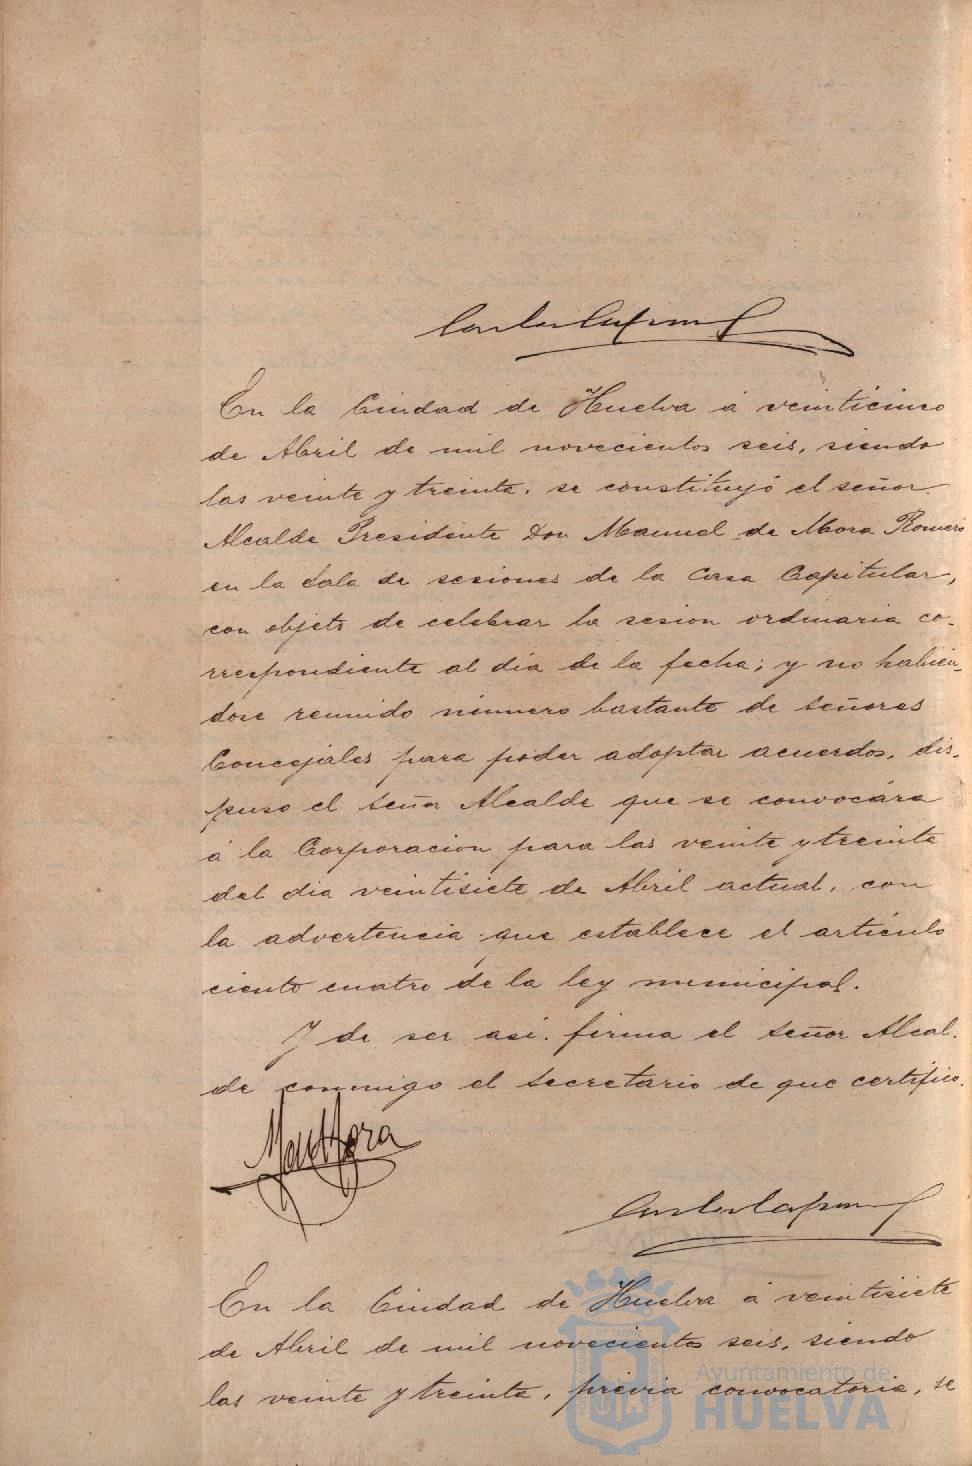 En la Ciudad de Huelva á veinticinco
de Abril de mil novecientos seis, siendo
las veinte y treinta, se constituyó el señor
Alcalde Presidente Don Manuel de Mora Romero
en la Sala de sesiones de la Casa Capitular,
con objeto de celebrar la sesion ordinaria co-
rrespondiente al dia de la fecha; y no habien-
dose reunido número bastante de señores
Concejales para poder adoptar acuerdos, dis-
puso el señor Alcalde que se convocára
á la Corporacion para las veinte y treinta
del dia veintisiete de Abril actual, con
la advertencia que establece el artículo
ciento cuatro de la ley municipal.
Y de ser asi firma el señor Alcal-
de conmigo el Secretario de que certifico.
Man Mora
En la Ciudad de Huelva á veintisiete
de Abril de mil novecientos seis, siendo
las veinte y treinta, prévia convocatoria, se
Ayuntamiento de
HUELVA